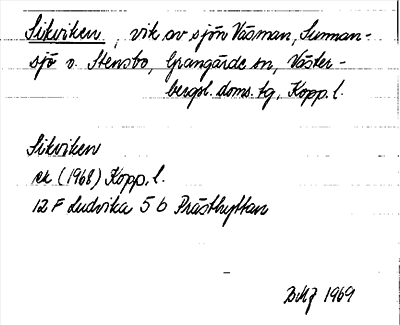 Sikviken, vik av sjön Väsman, Sunnan-
sjö v. Stensbo, Grangärde sn, Väster-
bergsl. doms. tg, Kopp. l.
Sikviken
ek (1968) Kopp. l.
12 F Ludvika 5 b Prästhyttan
1969